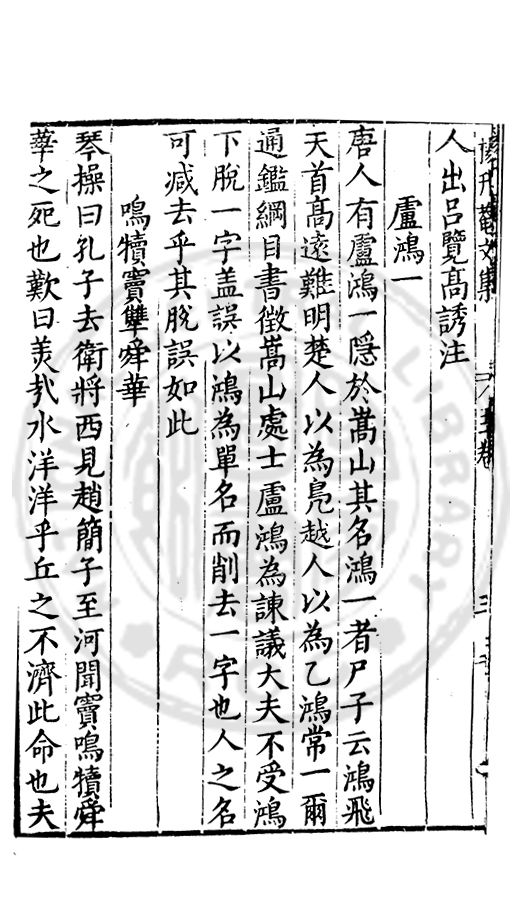 人出呂覽高誘注
盧鴻一
唐人有盧鴻一隱於嵩山其名鴻一者尸子云鴻飛
天首高遠難明楚人以為鳧越人以為乙鴻常一爾
通鑑綱目書徵嵩山處士盧鴻為諫議大夫不受鴻
下脫一字盖誤以鴻為單名而削去一字也人之名
可減去乎其脫誤如此
鳴犢竇犨舜華
琴操曰孔子去衛將西見趙簡子至河聞竇鳴犢舜
華之死也歎曰美哉水洋洋乎丘之不濟此命也夫